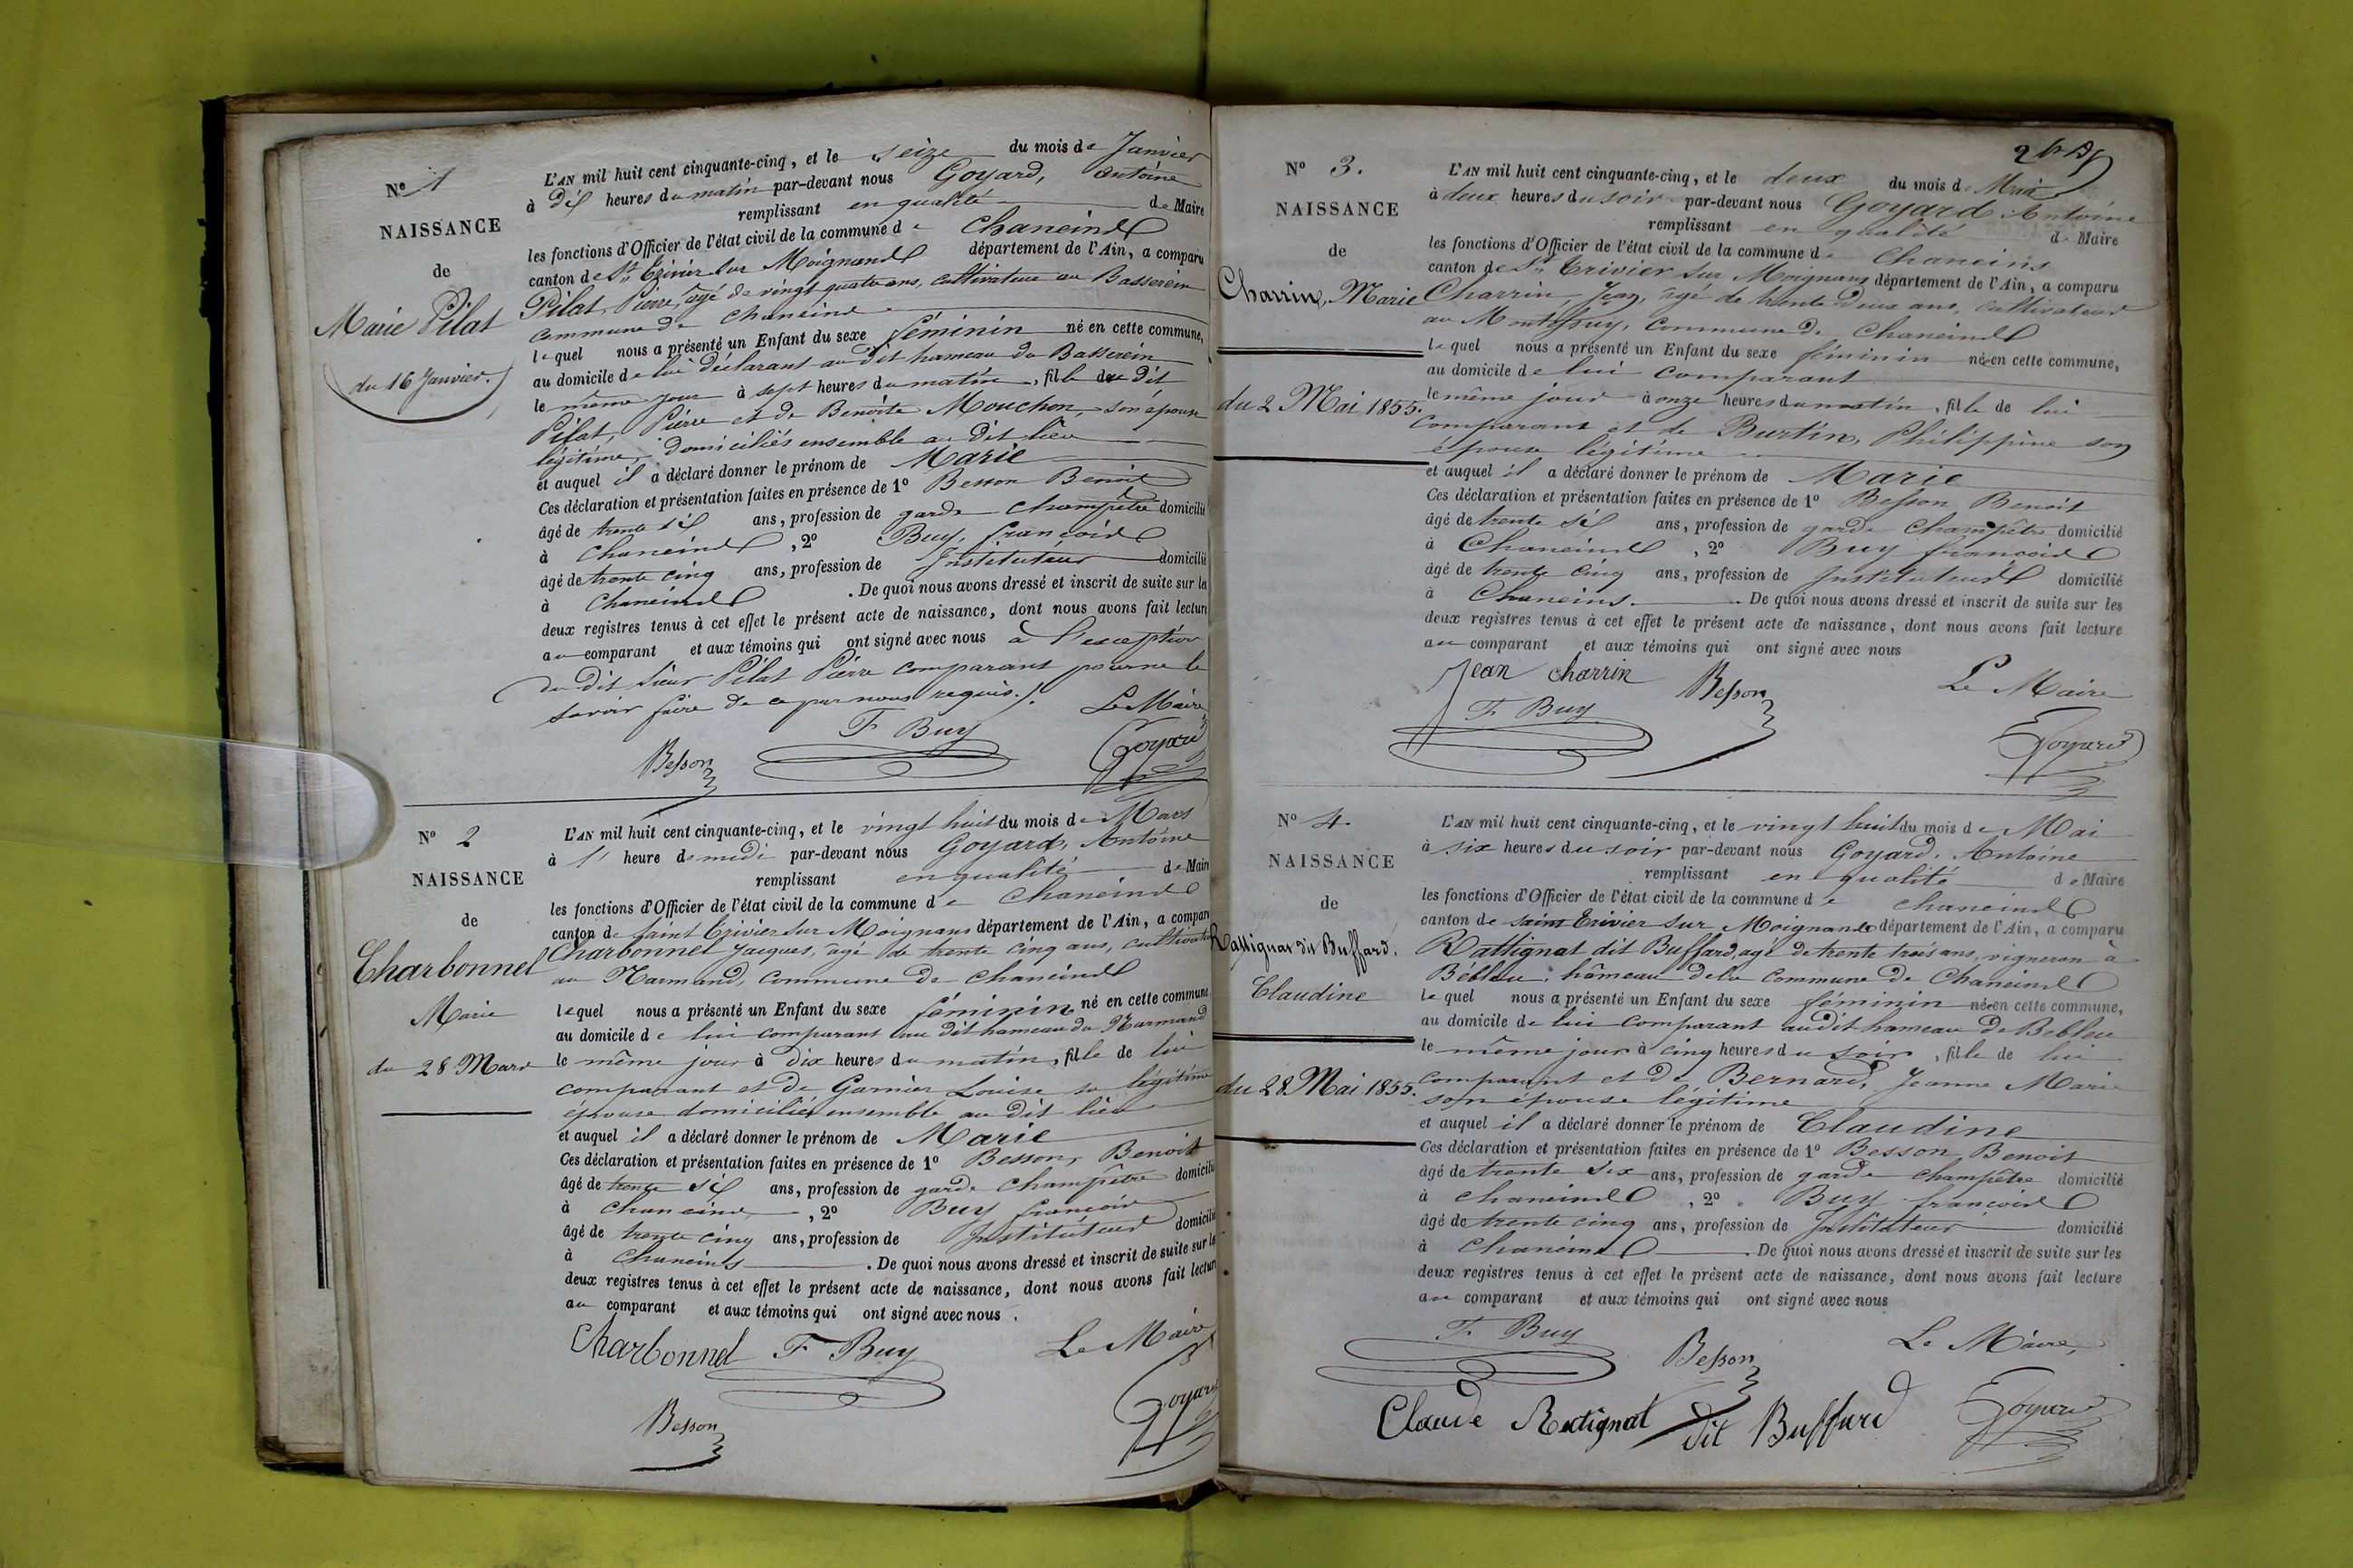 Nº 1
NAISSANCE
de
Marie Pilat
du 16 Janvier.
L'AN mil huit cent cinquante-cinq, et le seize du mois de Janvier
à dix heures du matin par-devant nous Goyard, Antoine
remplissant en qualité de Maire
les fonctions d'Officier de l'état civil de la commune de Chaneins
canton de St Trivier sur Moignans département de l'Ain, a comparu
Pilat, Pierre, âgé de vingt quatre ans, cultivateur au Basserein
commune de Chaneins
lequel nous a présenté un Enfant du sexe féminin né en cette commune,
au domicile de lui déclarant au dit hameau du Basserein
le même jour à sept heures du matin, fille du dit
Pilat, Pierre et de Benoite Mouchon, son épouse
légitime, domiciliés ensemble au dit lieu
et auquel il a déclaré donner le prénom de Marie
Ces déclaration et présentation faites en présence de 1º Besson Benoit
âgé de trente six ans, profession de garde champêtre domicilié
à Chaneins, 2º Buy, françois
âgé de trente cinq ans, profession de Instituteur domicilié
à Chaneins. De quoi nous avons dressé et inscrit de suite sur les
deux registres tenus à cet effet le présent acte de naissance, dont nous avons fait lecture
au comparant et aux témoins qui ont signé avec nous à l'exception
du dit sieur Pilat Pierre comparant pour ne le
savoir faire de ce par nous requis./.
Le Maire
F Buy
Besson
Goyard
Nº 2
NAISSANCE
de
Charbonnel
Marie
du 28 Mars
L'AN mil huit cent cinquante-cinq, et le vingt huit du mois de Mars
à 1 heure de midi par-devant nous Goyard, Antoine
remplissant en qualité de Maire
les fonctions d'Officier de l'état civil de la commune de Chaneins
canton de Saint Trivier sur Moignans département de l'Ain, a comparu
Charbonnel Jacques, âgé de trente cinq ans, cultivateur
au Marmand, commune de Chaneins
lequel nous a présenté un Enfant du sexe féminin né en cette commune
au domicile de lui comparant au dit hameau du Marmand
le même jour à dix heures du matin, fille de lui
comparant et de Garnier Louise sa légitime
épouse domiciliés ensemble au dit lieu
et auquel il a déclaré donner le prénom de Marie
Ces déclaration et présentation faites en présence de 1º Besson, Benoit
âgé de trente six ans, profession de garde champêtre domicilié
à Chaneins, 2º Buy françois
âgé de trente cinq ans, profession de Instituteur domicilié
à Chaneins. De quoi nous avons dressé et inscrit de suite sur les
deux registres tenus à cet effet le présent acte de naissance, dont nous avons fait lecture
au comparant et aux témoins qui ont signé avec nous.
Charbonnel F Buy Le Maire
Besson Goyard
2
Nº 3.
NAISSANCE
de
Charrin, Marie
du 2 Mai 1855.
L'AN mil huit cent cinquante-cinq, et le deux du mois de Mai
à deux heures du soir par-devant nous Goyard Antoine
remplissant en qualité de Maire
les fonctions d'Officier de l'état civil de la commune de Chaneins
canton de St Trivier sur Moignans département de l'Ain, a comparu
Charrin, Jean, âgé de trente deux ans, cultivateur
au Montessuy, commune de Chaneins
lequel nous a présenté un Enfant du sexe féminin né en cette commune,
au domicile de lui comparant
le même jour à onze heures du matin, fille de lui
comparant et de Burtin, Philippine son
épouse légitime
et auquel il a déclaré donner le prénom de Marie
Ces déclaration et présentation faites en présence de 1º Besson Benoit
âgé de trente six ans, profession de garde champêtre domicilié
à Chaneins, 2º Buy françois
âgé de trente cinq ans, profession de Instituteur domicilié
à Chaneins. De quoi nous avons dressé et inscrit de suite sur les
deux registres tenus à cet effet le présent acte de naissance, dont nous avons fait lecture
au comparant et aux témoins qui ont signé avec nous
Jean charrin Besson Le Maire
F Buy
Goyard
Nº 4.
NAISSANCE
de
Rattignat dit Buffard.
Claudine
du 28 Mai 1855.
L'AN mil huit cent cinquante-cinq, et le vingt huit du mois de Mai
à six heures du soir par-devant nous Goyard, Antoine
remplissant en qualité de Maire
les fonctions d'Officier de l'état civil de la commune de Chaneins
canton de saint Trivier sur Moignans département de l'Ain, a comparu
Rattignat dit Buffard, âgé de trente trois ans, vigneron à
Bébleu, hâmeau de la commune de Chaneins
lequel nous a présenté un Enfant du sexe féminin né en cette commune,
au domicile de lui comparant audit hameau de Bebleu
le même jour à cinq heures du soir, fille de lui
comparant et de Bernard, Jeanne Marie
son épouse légitime
et auquel il a déclaré donner le prénom de Claudine
Ces déclaration et présentation faites en présence de 1º Besson Benoit
âgé de trente six ans, profession de garde champêtre domicilié
à Chaneins, 2º Buy françois
âgé de trente cinq ans, profession de Instituteur domicilié
à Chaneins. De quoi nous avons dressé et inscrit de suite sur les
deux registres tenus à cet effet le présent acte de naissance, dont nous avons fait lecture
au comparant et aux témoins qui ont signé avec nous
F. Buy Besson Le Maire,
Claude Ratignat dit Buffard Goyard